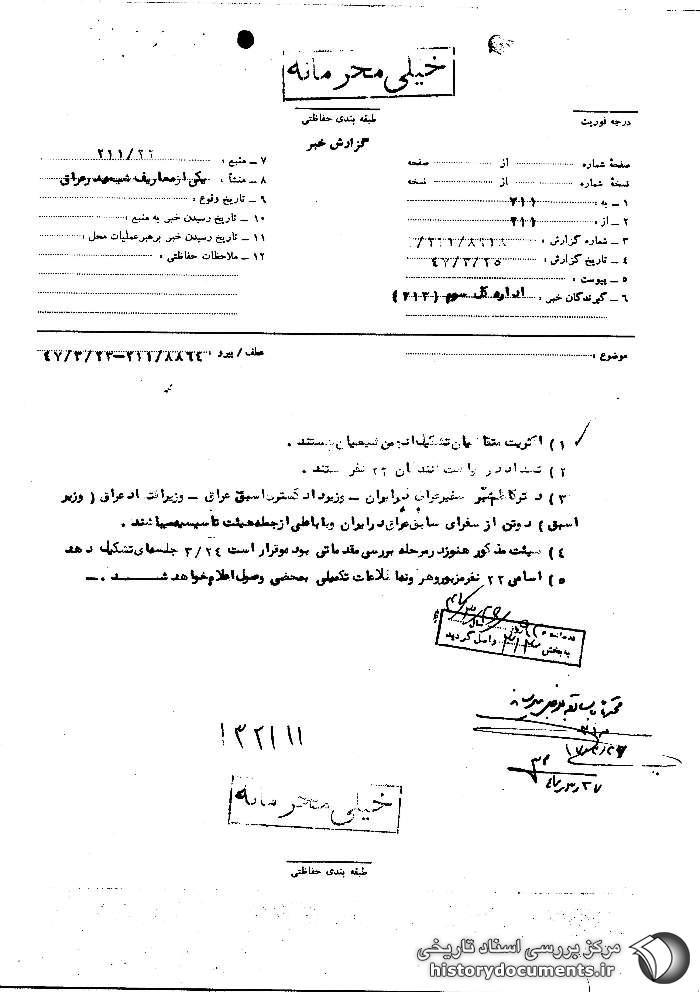 خیلی محرمانه
طبقه بندی حفاظتی
گزارش خبر
درجه فوریت
صفحهٔ شماره از صفحه
نسخهٔ شماره از نسخه
۱ ـ به : ۲۱۱
۲ ـ از : ۲۱۱
۳ ـ شماره گزارش :
۴ ـ تاریخ گزارش : ۴۷/۳/۲۵
۵ ـ پیوست :
۶ ـ گیرندگان خبر : اداره کل سوم (۲۱۳)
۷ ـ منبع :
۸ ـ منشأ : یکی از معاریف شیعه در عراق
۹ ـ تاریخ وقوع :
۱۰ ـ تاریخ رسیدن خبر به منبع :
۱۱ ـ تاریخ رسیدن خبر برهبر عملیات محل :
۱۲ ـ ملاحظات حفاظتی :
موضوع :
عطف / پیرو : ۲۱۱/۸۸۶۴-۴۷/۳/۲۳
۱) اکثریت متقاضیان تشکیل انجمن شیعیان هستند .
۲) تعداد در خواست کنندگان ۲۲ نفر هستند .
۳) دکتر سفیر عراق در ایران ـ وزیر دادگستری اسبق عراق ـ وزیر اقتصاد عراق ( وزیر
اسبق ) دو تن از سفرای سابق عراق در ایران از جمله هیئت تأسیسیه میباشند .
۴) هیئت مذکور هنوز در مرحله بررسی مقدماتی بوده و قرار است ۳/۲۴ جلسه‌ای تشکیل دهد
۵) اسامی ۲۲ نفر مزبور و هرگونه اطلاعات تکمیلی بمحض وصول اعلام خواهد شد . ـ
به بخش ۳۱۲ واصل گردید
۱۳۲۱۱۱
خیلی محرمانه
طبقه بندی حفاظتی
مرکز بررسی اسناد تاریخی
historydocuments.ir